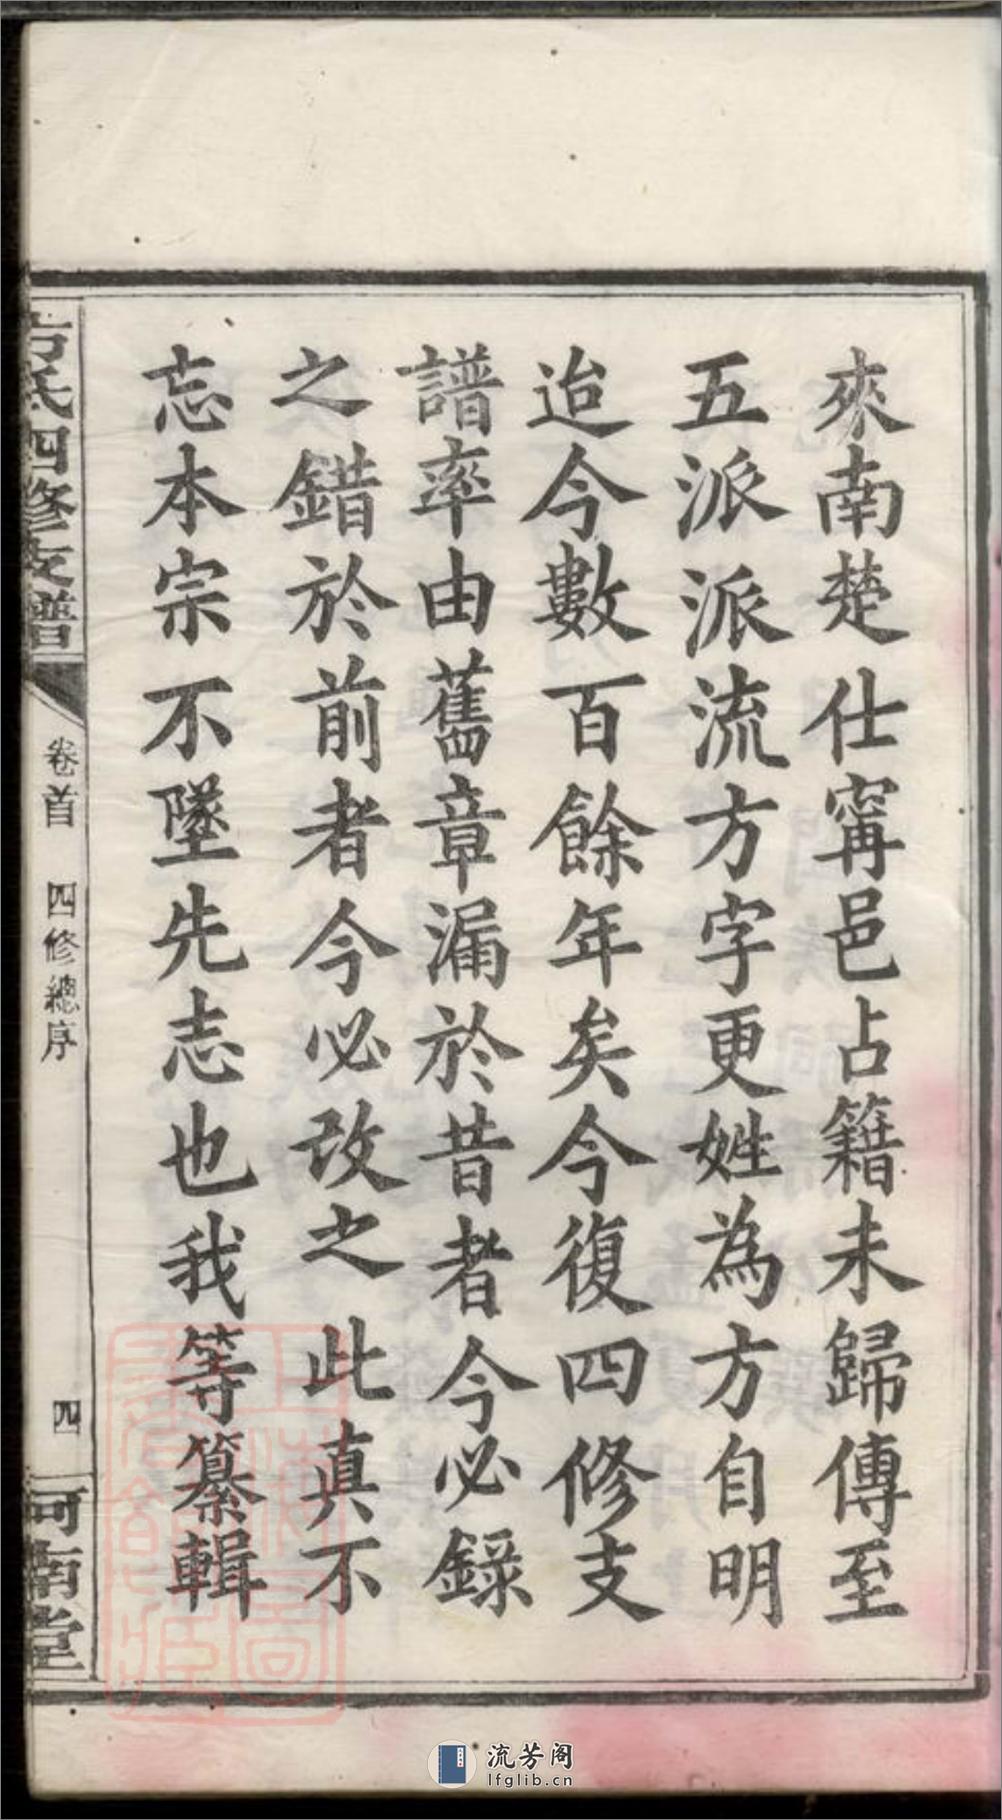 來南楚仕甯邑占籍未歸傳至
五派派流方字更姓為方自明
迨今數百餘年矣今復四修支
譜率由舊章漏於昔者今必錄
之錯於前者今必改之此真不
忘本宗不墜先志也我等纂輯
方氏四修支譜
卷首 四修總序
四
河南堂
流芳阁
lfglib.cn